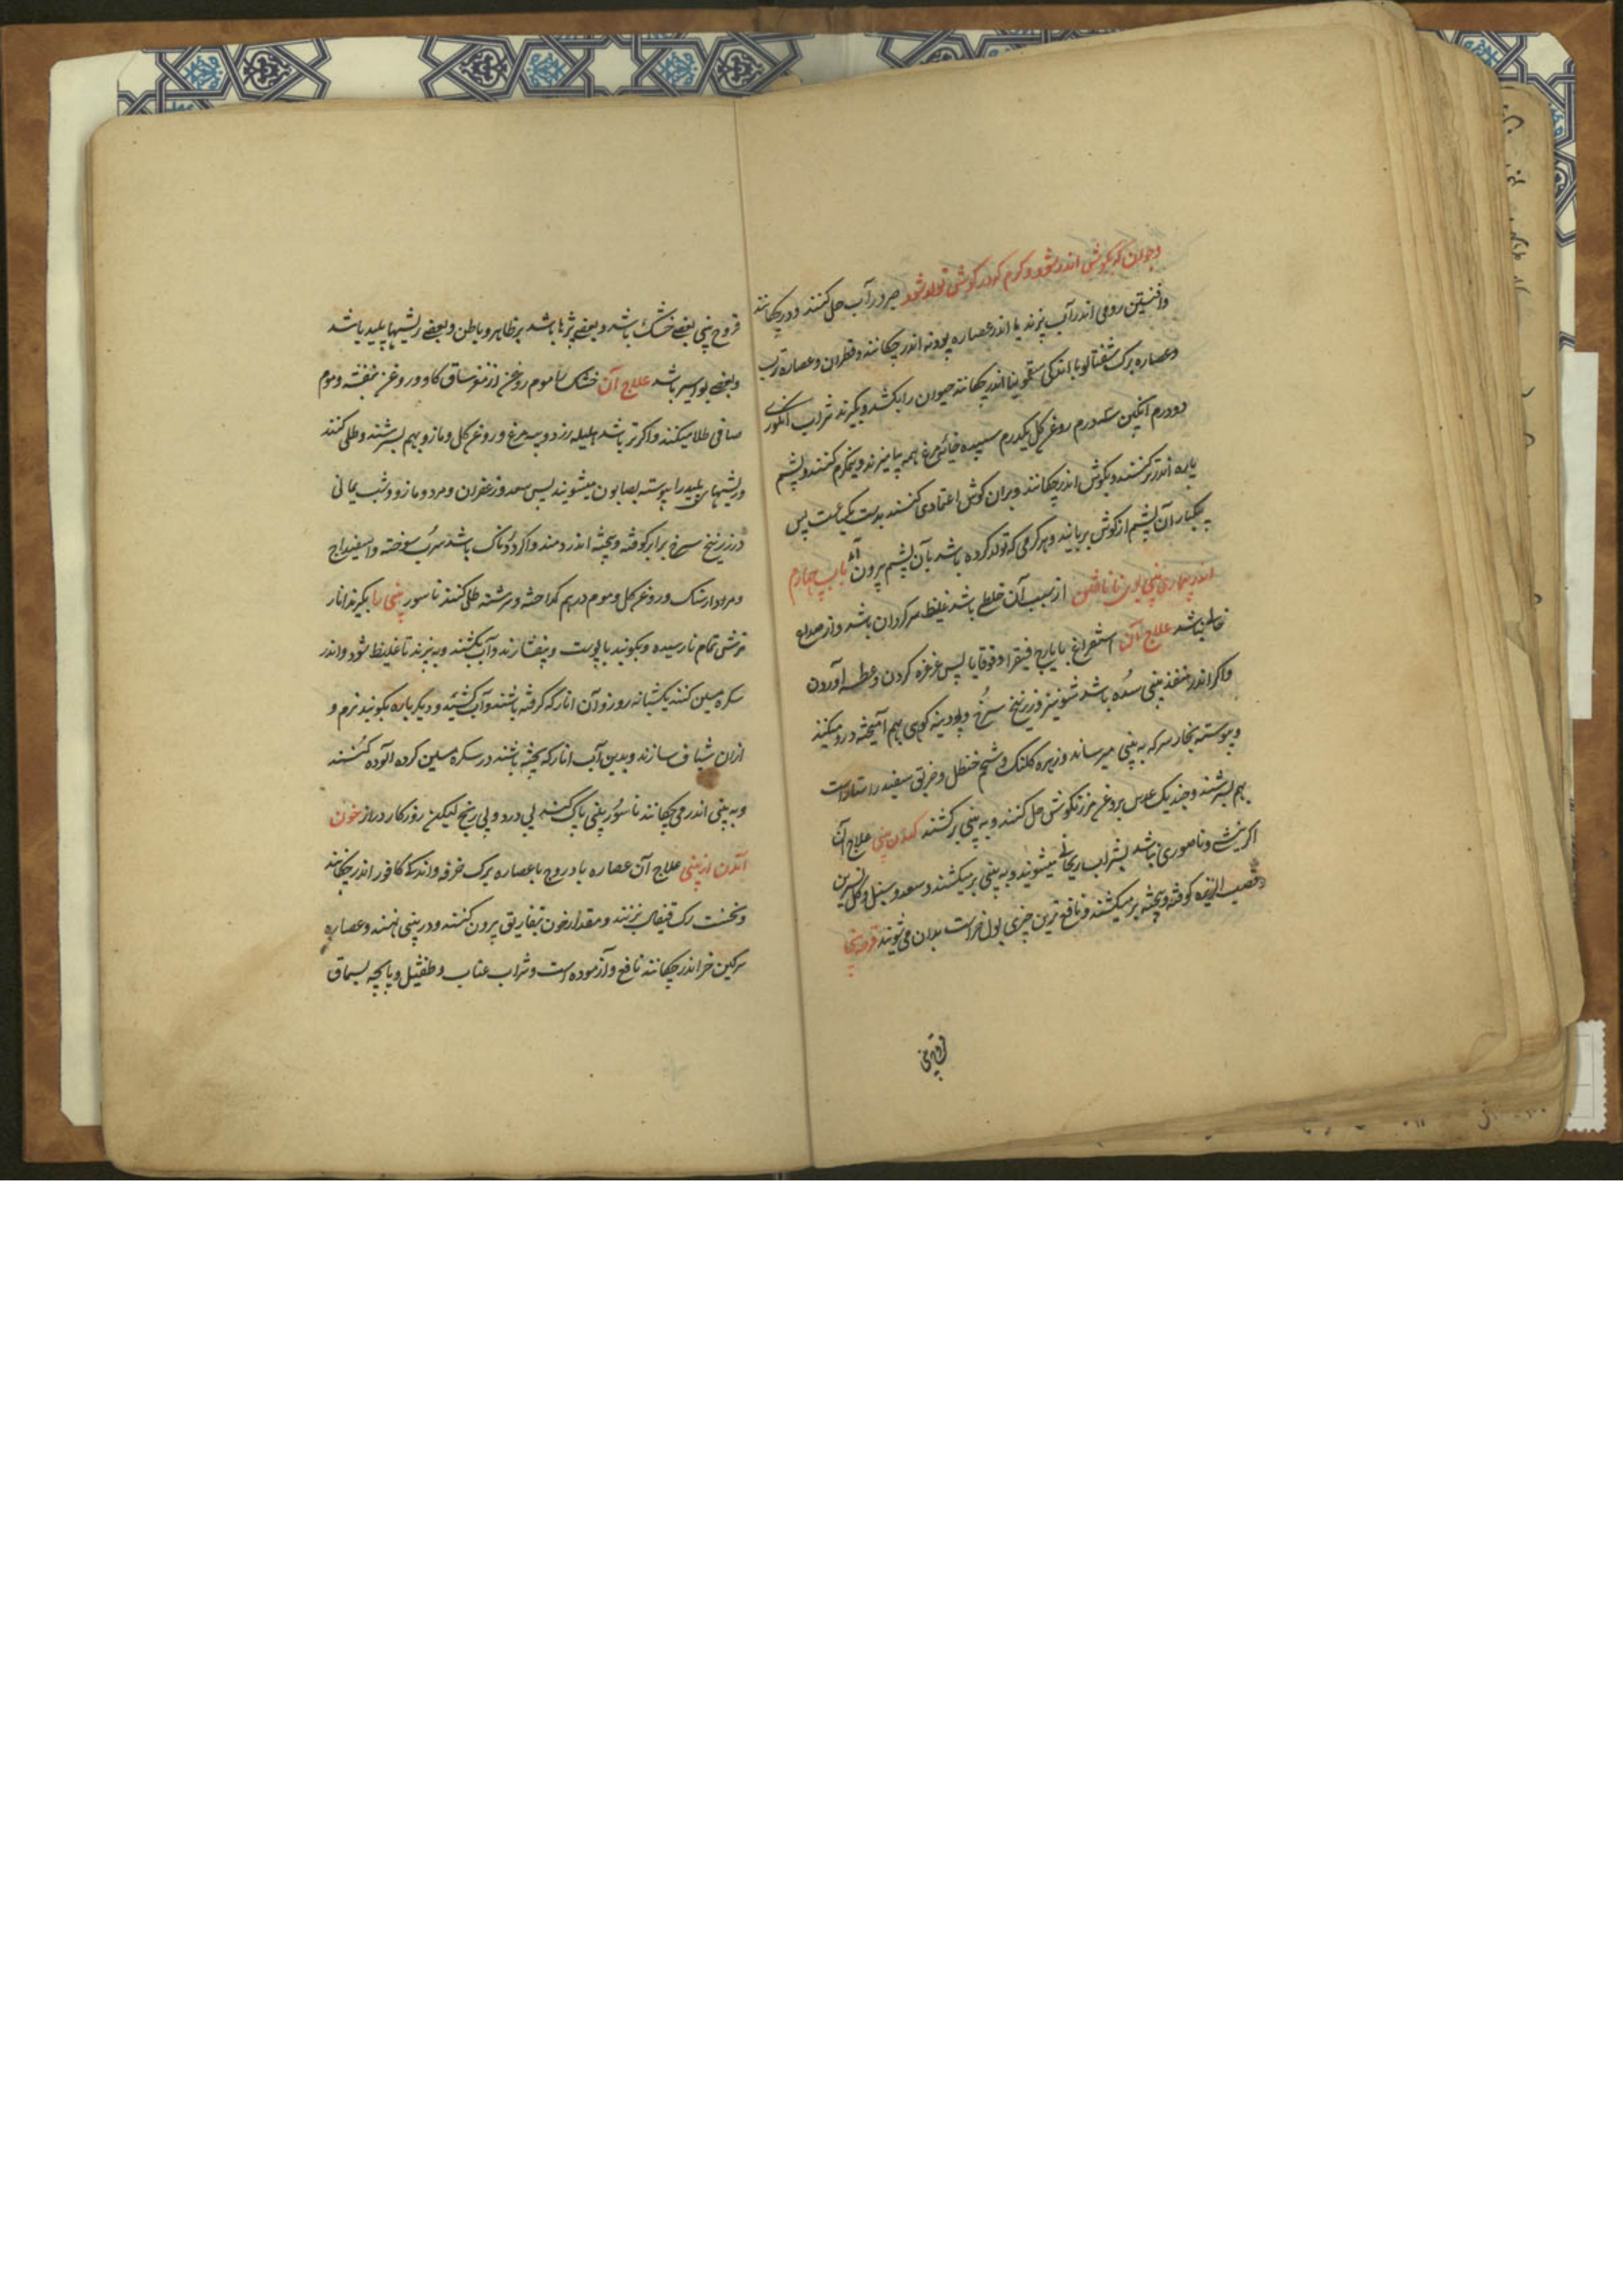 وحیوان که بگوش اندر شود و کرم که در گوش تولد شود صبر در آب حل کنند و درچکانند
وافسنتین رومی اندر آب بپزند یا اندر عصاره پودنه اندر چکانند و قطران و عصاره ترب
وعصاره برک شفتالو با اندکی سقمونیا اندر چکانند حیوان را بکشد و بگیرند شراب انکوری
دودرم انکبین سه درم روغن کل یکدرم سپیده خائه مرغ همه بیامیزند و نیمکرم کنند و پشم
پاره اندر تر کنند و بگوش اندر چکانند و بران کوش اعتمادی کنند بدست یکساعت پس
بیکبار آن پشم از کوش بربایند و هر کرمی که تولد کرده باشد بآن پشم برون آید باب چهارم
اندر بیماری بینی بوی نا یافتن از سبب آن خلطی باشد غلیظ سرکردان باشد و از صداع
خالی باشد علاج آن استفراغ بایارج فیقرا و قوقایا پس غرغره کردن و عطسه آوردن
واکر اندر منفذ بینی سده باشد شونیز و زرنیخ سرخ و پودینه کوهی بهم آمیخته درو میکنند
وپیوسته بخار سرکه به بینی میرساند و زهره کلنک و شحم حنظل و خربق سفید راستاراست
بهم بسرشند و چند یک عدس بروغن مرزنکوش حل کنند و به بینی برکشند کندن بینی علاج آن
اکر ریش و ناصوری نباشد بشراب ریحانی میشویند و به بینی برمیکشند و سعد و سنبل و کل نسرین
وقصب الذریره کوفته و بیخته برمیکشند و نافع ترین چیزی بول خر است بدان می شویند قرحه بینی
قروح بینی
قروح بینی بعضی خشک باشد و بعضی بثرها باشد بر ظاهر و باطن و بعضی ریشها پلید باشد
وبعضی بواسیر باشد علاج آن خشک را موم روغن از مغز ساق کاو و روغن بنفشه و موم
صافی طلا میکنند و اکر تر باشد هلیله زرد و پیه مرغ و روغن کل و مازو بهم بسرشند و طلی کنند
وریشهای پلید را پیوسته بصابون میشویند پس سعد و زعفران و مر و مازو و شب یمانی
وزرنیخ سرخ برابر کوفته و بیخته اندر دمند و اکر دردناک باشد سرب سوخته و اسفیداج
ومردارسنک و روغن کل و موم در هم کداخته و سرشته طلی کنند ناسور بینی را بکیرند انار
ترش تمام نارسیده و بکوبند با پوست و بیفشارند و آب بکشند و بپزند تا غلیظ شود و اندر
سکره مسین کنند یکشبانه روز و آن انار که کرفته باشند و آب کشیده و دیکر باره بکوبند نرم و
ازان شیاف سازند و بدین آب انار که پخته باشند در سکره مسین کرده آلوده کنند
وبه بینی اندر می چکانند ناسور بینی پاک کند بی درد و بی رنج لیکن روزکار دراز خون
آمدن از بینی علاج آن عصاره بادروج با عصاره برک خرفه و اندک کافور اندر چکانند
ونخست رک قیفال بزنند و مقدار خون بتفاریق برون کنند و در بینی نهند و عصاره
سرکین خر اندر چکانند نافع و آزموده است و شراب عناب و طفشیل و پاچه بسماق